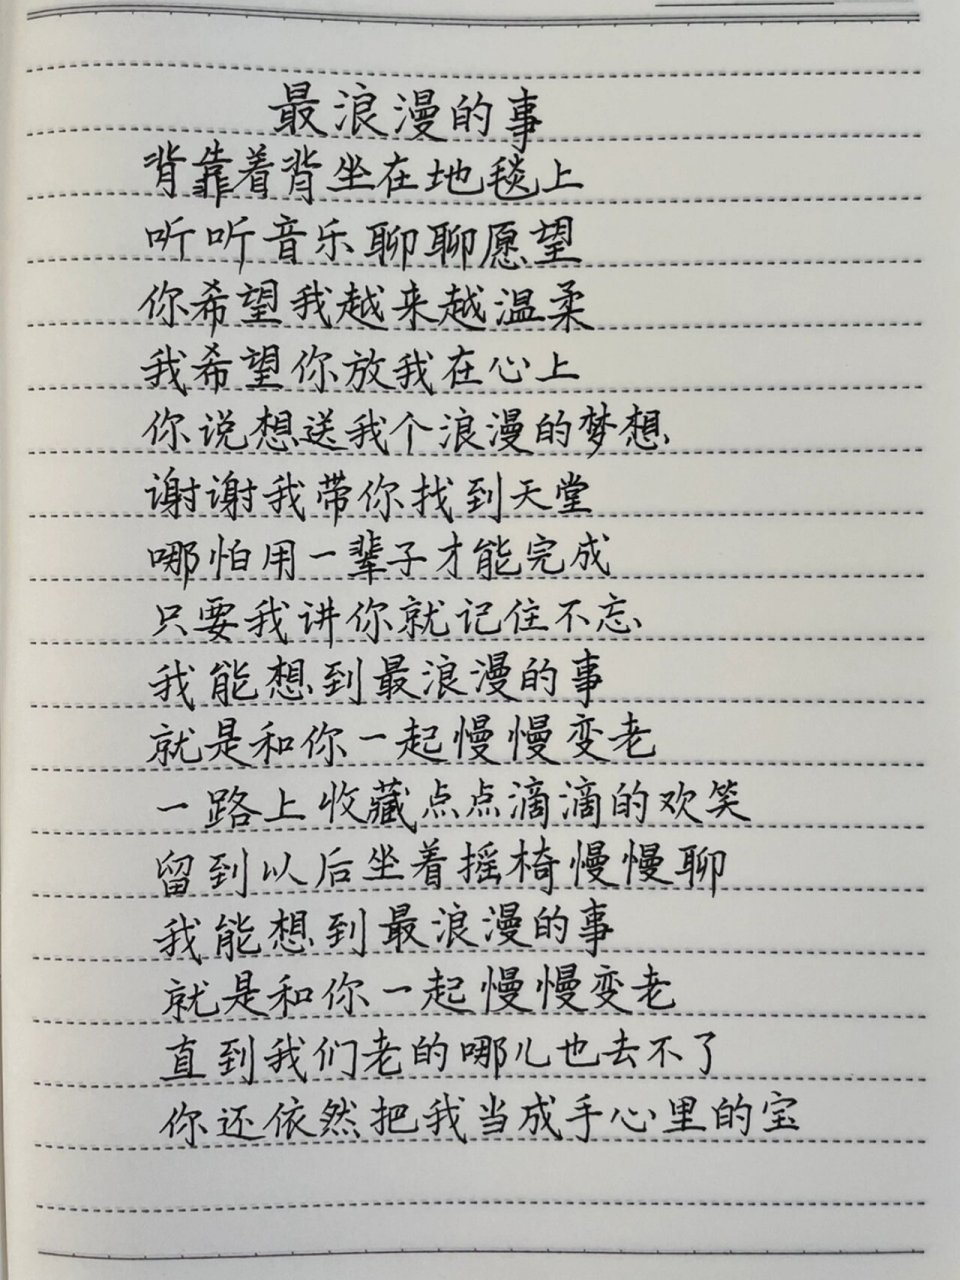 最浪漫的事
背靠着背坐在地毯上
听听音乐聊聊愿望
你希望我越来越温柔
我希望你放我在心上
你说想送我个浪漫的梦想
谢谢我带你找到天堂
哪怕用一辈子才能完成
只要我讲你就记住不忘
我能想到最浪漫的事
就是和你一起慢慢变老
一路上收藏点点滴滴的欢笑
留到以后坐着摇椅慢慢聊
我能想到最浪漫的事
就是和你一起慢慢变老
直到我们老的哪儿也去不了
你还依然把我当成手心里的宝